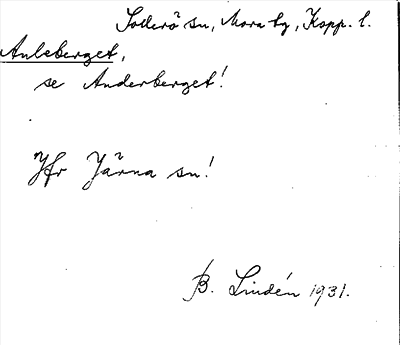 Sollerö sn, Mora tg, Kopp. l.
Anleberget,
se Anderberget!
Jfr Järna sn!
B. Lindén 1931.